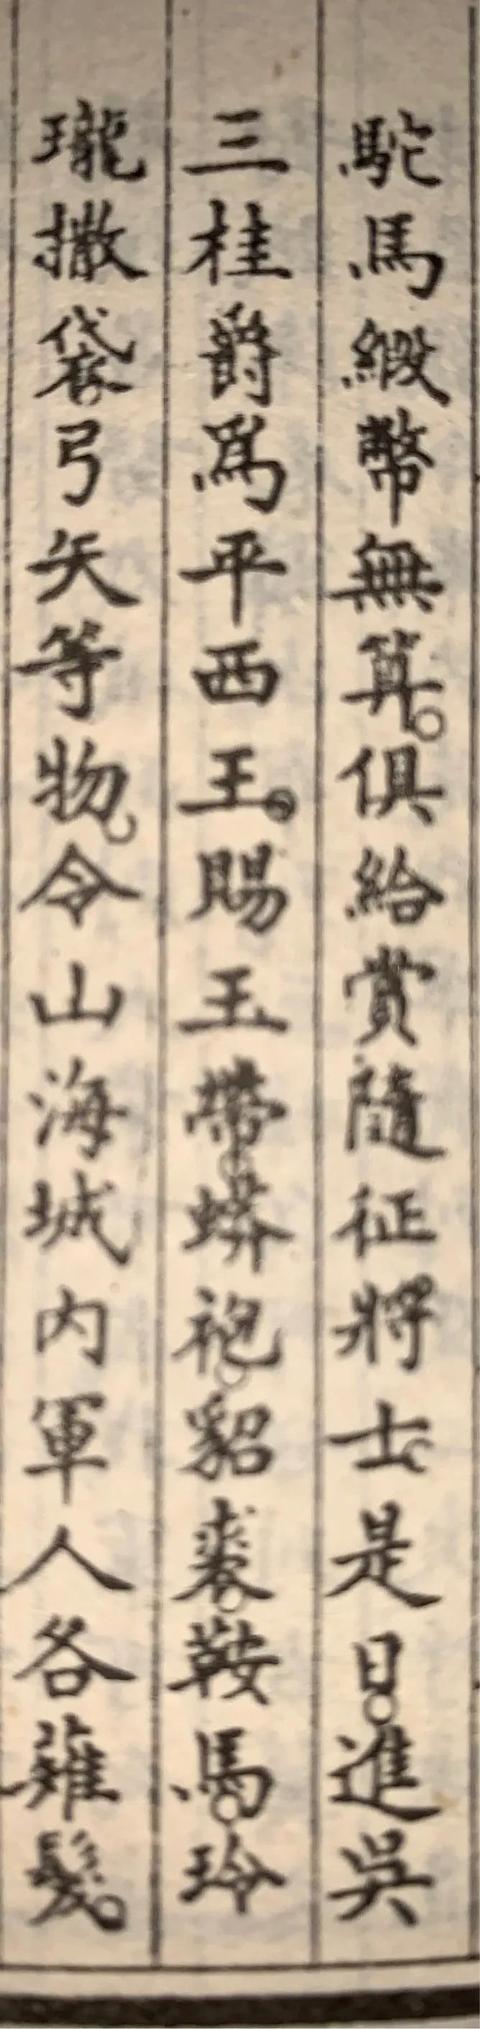 駝馬緞幣無算。俱給賞隨征將士。是日。進吳
三桂爵爲平西王。賜玉帶。蟒袍。貂裘。鞍馬。玲
瓏撒袋。弓矢等物。令山海城内軍人各薙髮。